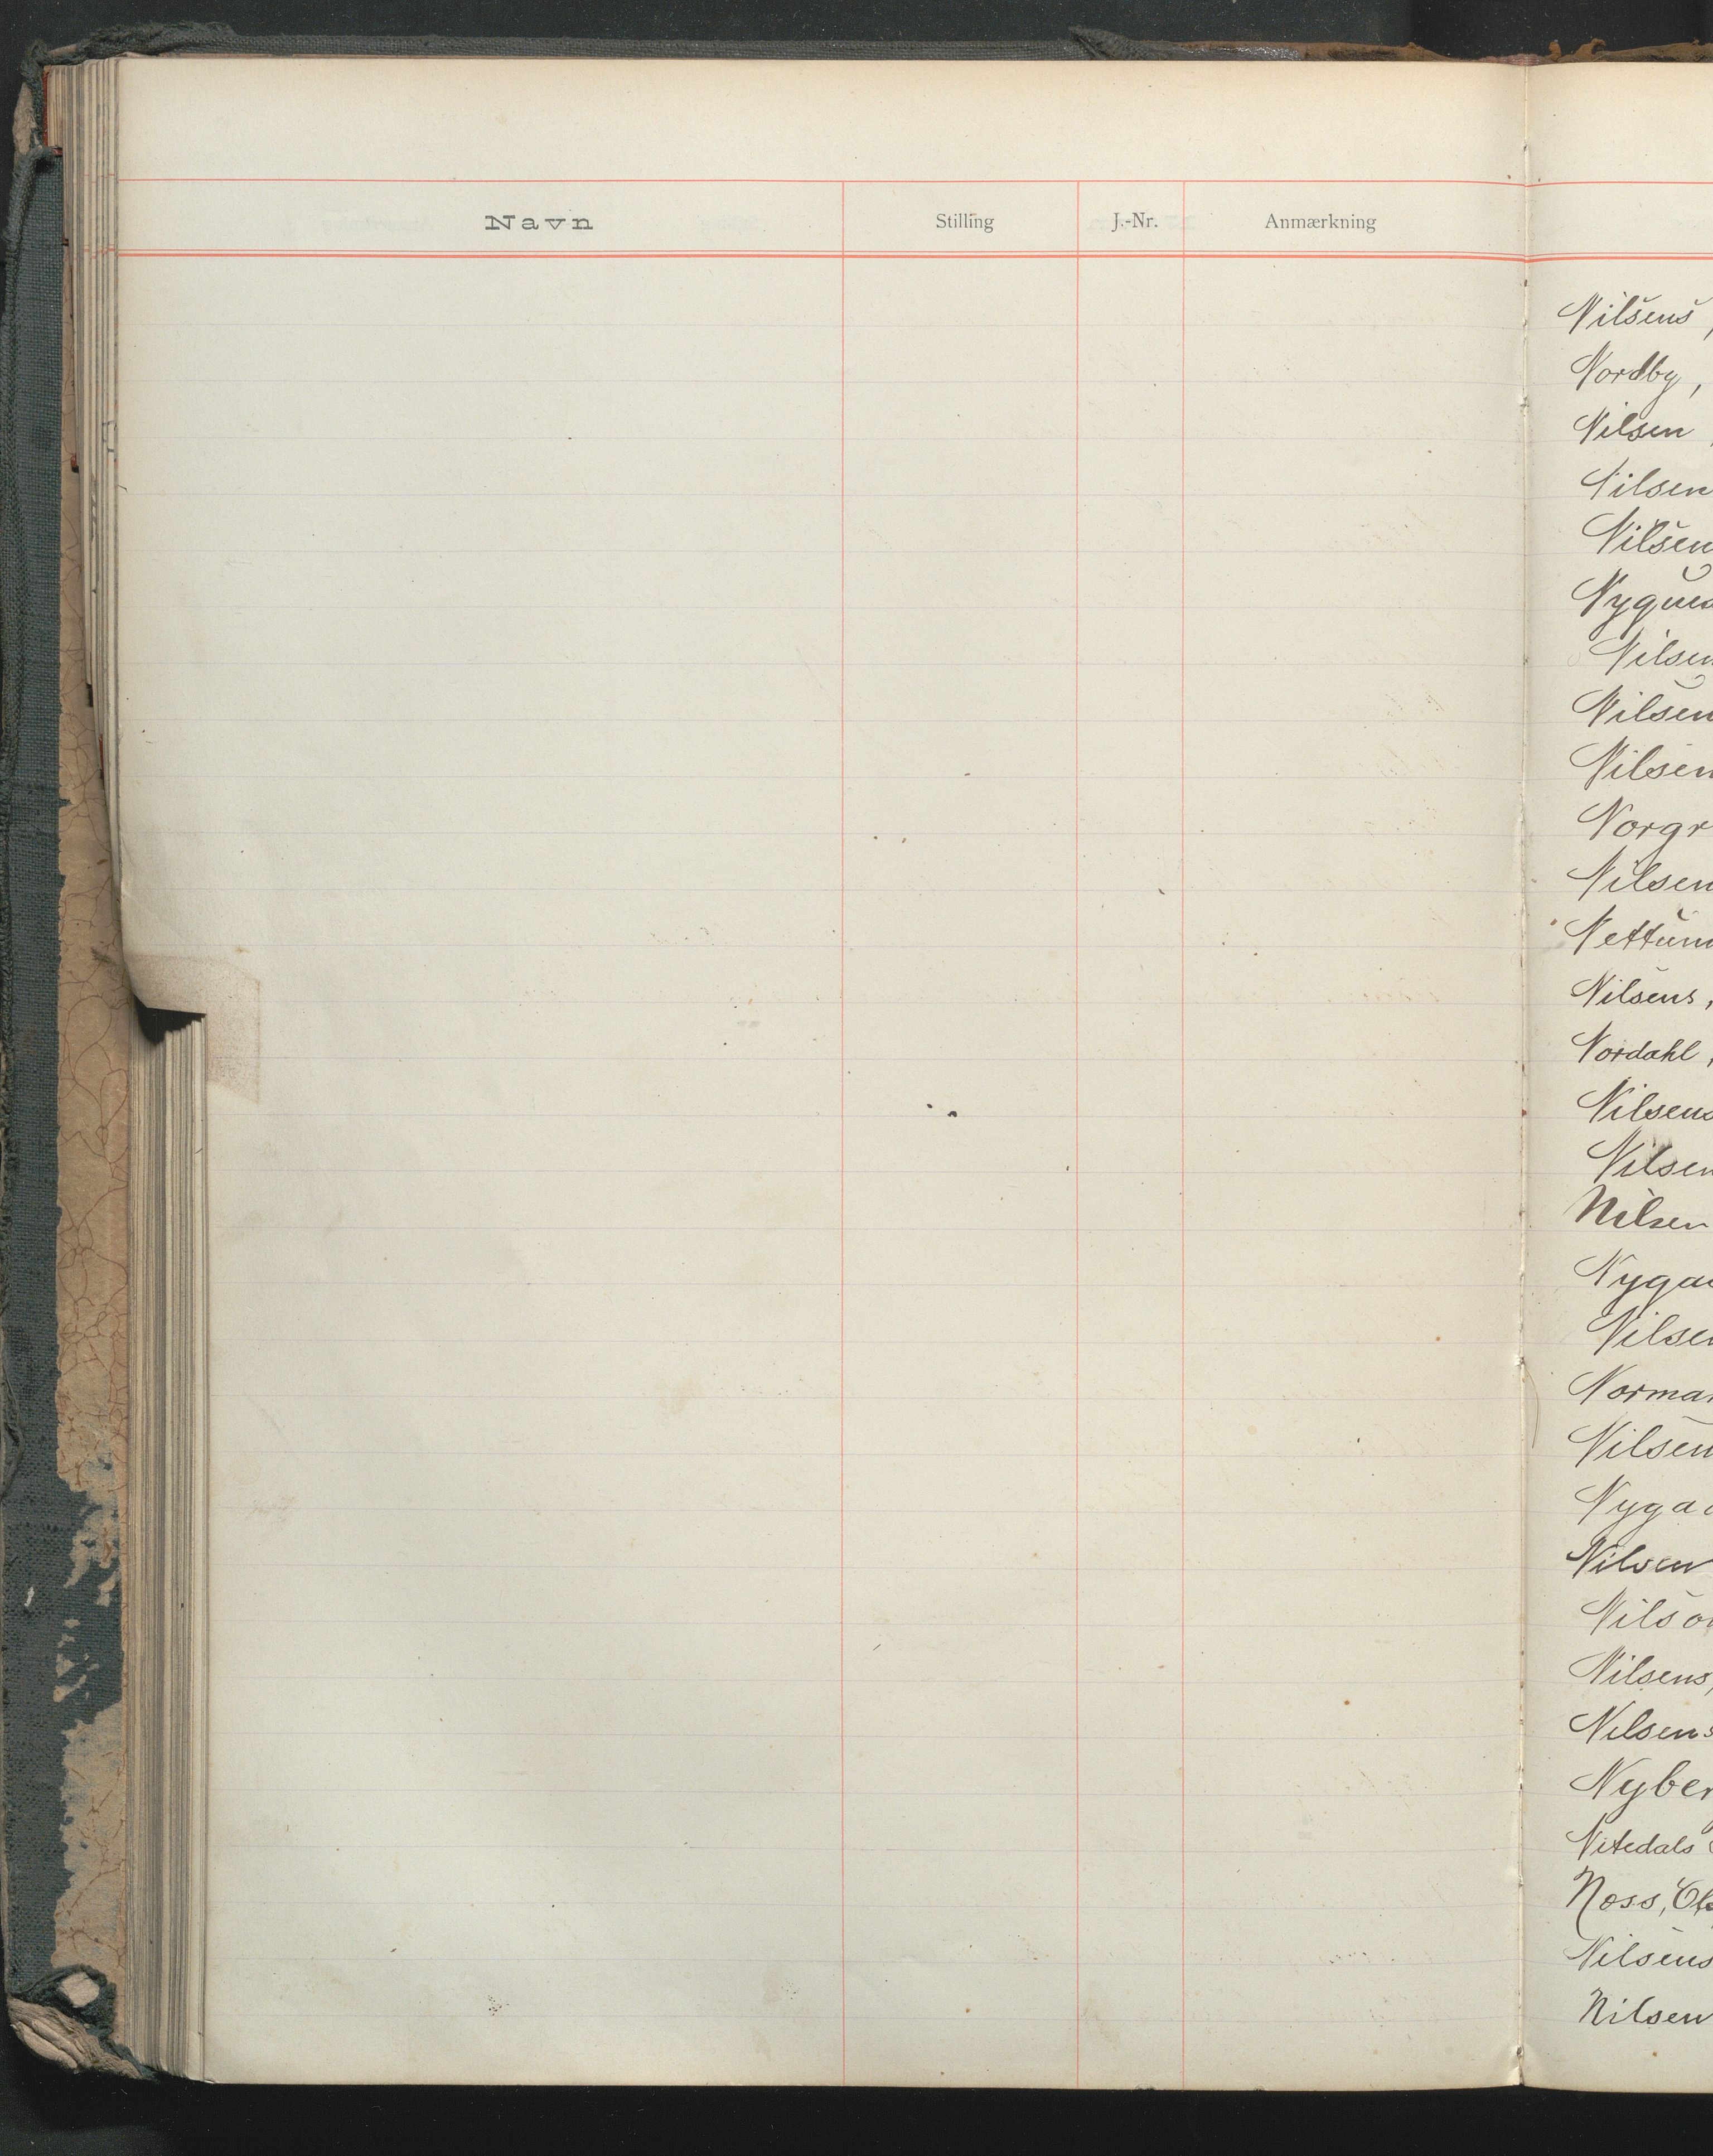 Navn Stilling J.-Nr. Anmærkning
Nilsens,
Nordby,
Nilsen,
Nilsen
Nilsen
Nilsen
Nilsen
Nilsen
Norgr
Nilsen
Nilsens,
Nordahl,
Nilsens
Nilsen
Nilsen
Nygaa
Nilsen
Norman
Nilsen
Nygaa
Nilsen
Nilson
Nilsens,
Nilsens
Nyber
Nitedals
Noss,
Nilsens
Nilsen